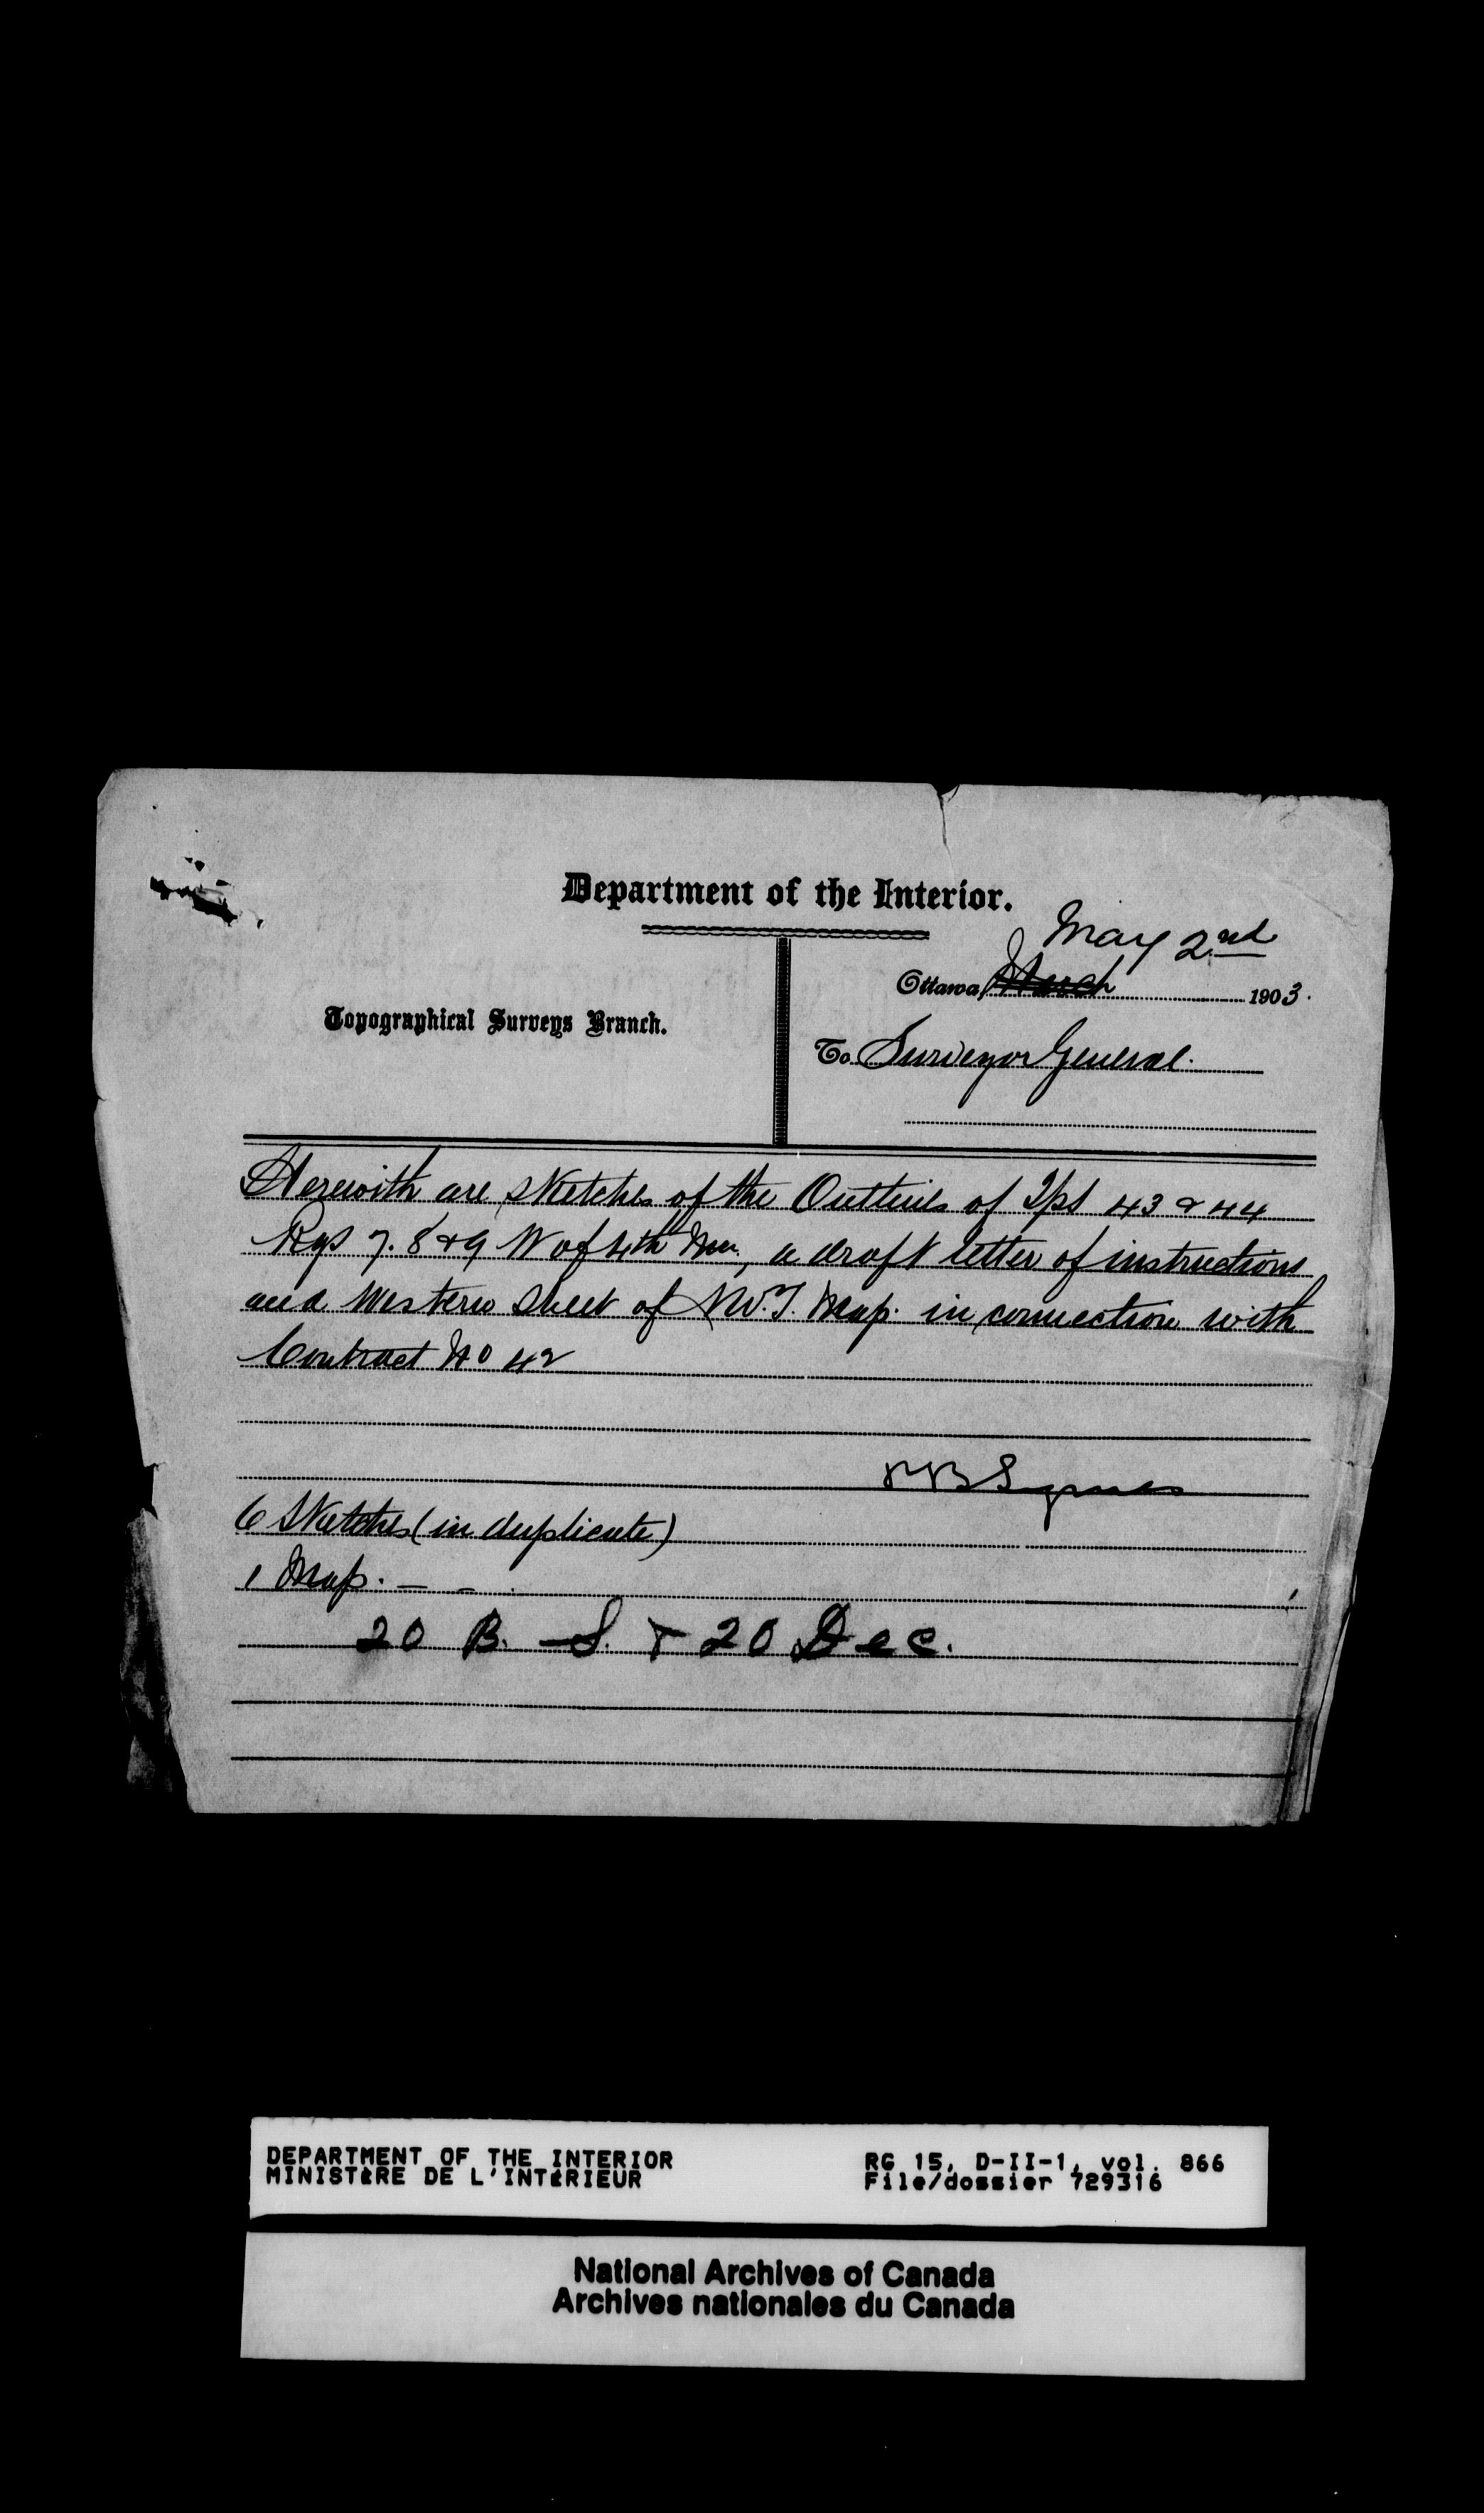 Department of the Interior.
May 2nd
Ottawa, March 1903.
Topographical Surveys Branch.
To Surveyor General.
Herewith are sketches of the Outlines of Tps 43 & 44
Rgs 7. 8 & 9 W of 4th Mer., a draft letter of instructions
and Western Sheet of N.W.T. Map. in connection with
Contract No 42
6 Sketches (in duplicate)
1 Map. — –
20 B. S. & 20 Dec.
DEPARTMENT OF THE INTERIOR
MINISTÈRE DE L'INTÉRIEUR
RG 15, D-II-1, vol. 866
File/dossier 729316
National Archives of Canada
Archives nationales du Canada